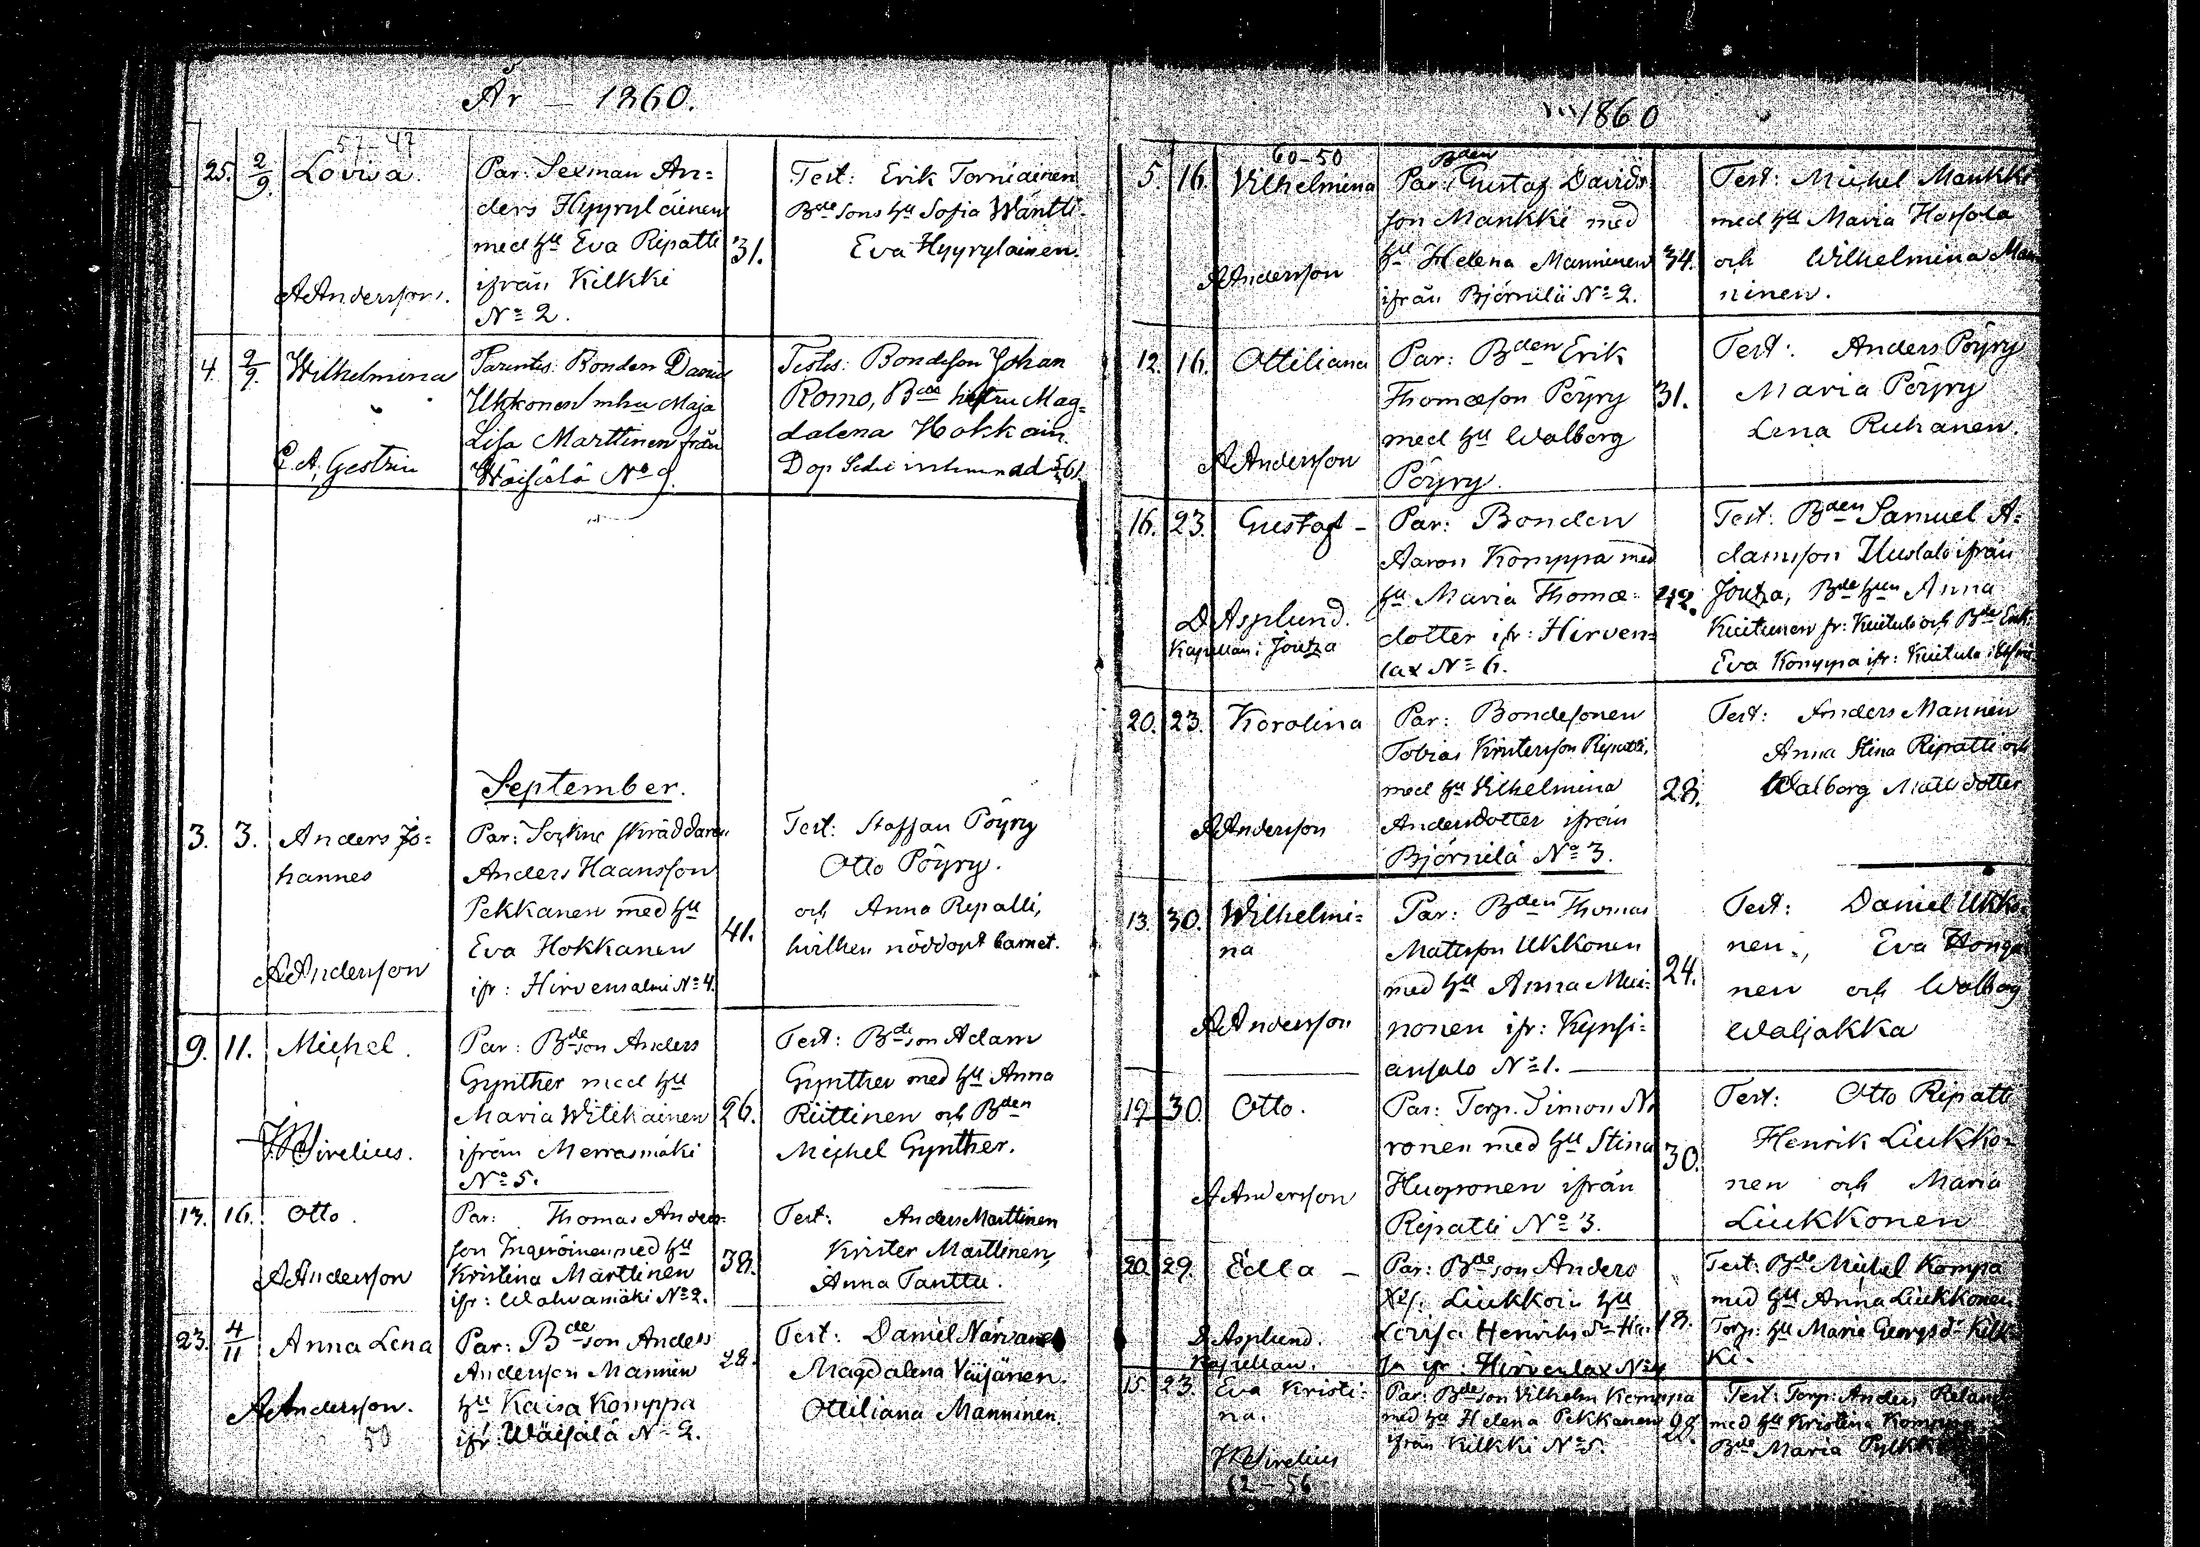 År — 1860.
57-47
25. 2/9. Lovisa.
Par: Sexman An=
ders Hyyryläinen
med hu Eva Ripatti
ifrån Kilkki
No 2.
31.
Test: Erik Torniainen
Bde sons hu Sofia Wäntti.
Eva Hyyryläinen.
A Andersson.
4. 2/9. Wilhelmina
Parentes: Bonden David
Ukkonen mhu Maja
Lisa Marttinen från
Wäisälä No 9.
Testes: Bondeson Johan
Romo, Bde hustru Mag=
dalena Hokkain.
C. A. Gestrin
September.
3. 3. Anders Jo=
hannes
Par: Sockne skräddaren
Anders Haansson
Pekkanen med hu
Eva Hokkanen
ifr: Hirvensalmi No 4.
41.
Test: Staffan Pöyry
Otto Pöyry.
och Anna Repatti,
hvilken nöddöpt barnet.
A Andersson
9. 11. Michel.
Par: Bde son Anders
Gynther med hu
Maria Witikainen
ifrån Merrasmäki
No 5.
26.
Test: Bde son Adam
Gynther med hu Anna
Riittinen och Bden
Michel Gynther.
Sirelius.
13. 16. Otto.
Par: Thomas Anders=
son Ingeröinen med hu
Kristina Marttinen
ifr: Wahvamäki No 2.
38.
Test: Anders Marttinen
Krister Marttinen,
Anna Tanttu.
A Andersson
23. 4/11 Anna Lena
Par: Bde son Anders
Andersson Mannin
hu Kaisa Komppa
ifr: Wäisälä No 2.
28.
Test: Daniel Närvänen
Magdalena Väisänen.
Ottiliana Manninen.
A Andersson.
50
1860
60-50
5. 16. Vilhelmina
Bden
Par: Gustaf Davids
son Mankki med
hu Helena Manninen
ifrån Björnilä No 2.
34.
Test: Michel Mankki
med hu Maria Harjola
och Wilhelmina Man
ninen.
A Andersson
12. 16. Ottiliana
Par: Bden Erik
Thomasson Pöyry
med hu Walborg
Pöyry.
31.
Test: Anders Pöyry
Maria Pöyry
Lena Ruhanen.
A Andersson
16. 23. Gustaf -
Par: Bonden
Aaron Komppa med
hu Maria Thomæ-
dotter ifr: Hirven=
lax No 6.
42.
Test: Bden Samuel A=
damsson ifrån
Joutsa, Bde hun Anna
Kuitunen fr: Kuitula och Bde
Eva Komppa ifr: Kuitula
D Asplund.
Kapellan i Joutza
20. 23. Karolina
Par: Bondesonen
Tobias Kristersson Ripatti,
med hu Vilhelmina
Andersdotter ifrån
Björnilä No 3.
28.
Test: Anders Mannin
Anna Stina Ripatti och
Walborg Matts dotter
A Andersson
13. 30. Wilhelmi=
na
Par: Bden Thomas
Matsson Ukkonen
med hu Anna Mui=
nonen ifr: Kynsi=
ansalo No 1.
24.
Test: Daniel Ukko=
nen, Eva Honga
nen och Walborg
Waljakka
A Andersson
19. 30. Otto.
Par: Torp. Simon No
ronen med hu Stina
Huoponen ifrån
Ripatti No 3.
30.
Test: Otto Ripatti
Henrik Liukko=
nen och Maria
Liukkonen
A Andersson
20. 29. Edla -
Par: Bde son Anders
Liukkoin hu
Lovisa Henriks
ifr: Hirvenlax No 4
18.
Test: Bde Michel Kompa
med hu Anna Liukkonen
Torp: hu Maria Georgsdr Kilk
ki.
D Asplund.
Kapellan.
15. 23. Eva Kristi=
na.
Par: Bde son Vilhelm Komppa
med hu Helena Pekkanen
ifrån Kilkki No 5.
28.
Test: Torp: Anders
med hu Kristina Komppa
Bde Maria
Sirelius
62-56